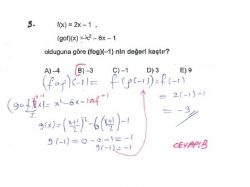 3. f(x) = 2x − 1 ,
(gof)(x) = x² − 6x − 1
olduguna göre (fog)(−1) nin değeri kaçtır?
A) −4 B) −3 C) −1 D) 3 E) 9
(fog)(−1) = f(g(−1)) = f(−1)
= 2(−1)−1
= −3
(gof)(x) = x²−6x−1
g(x) = (x+1/2)² − 6(x+1/2) − 1
g(−1) = 0 − 0 − 1 = −1
g(−1) = −1
CEVAP: B